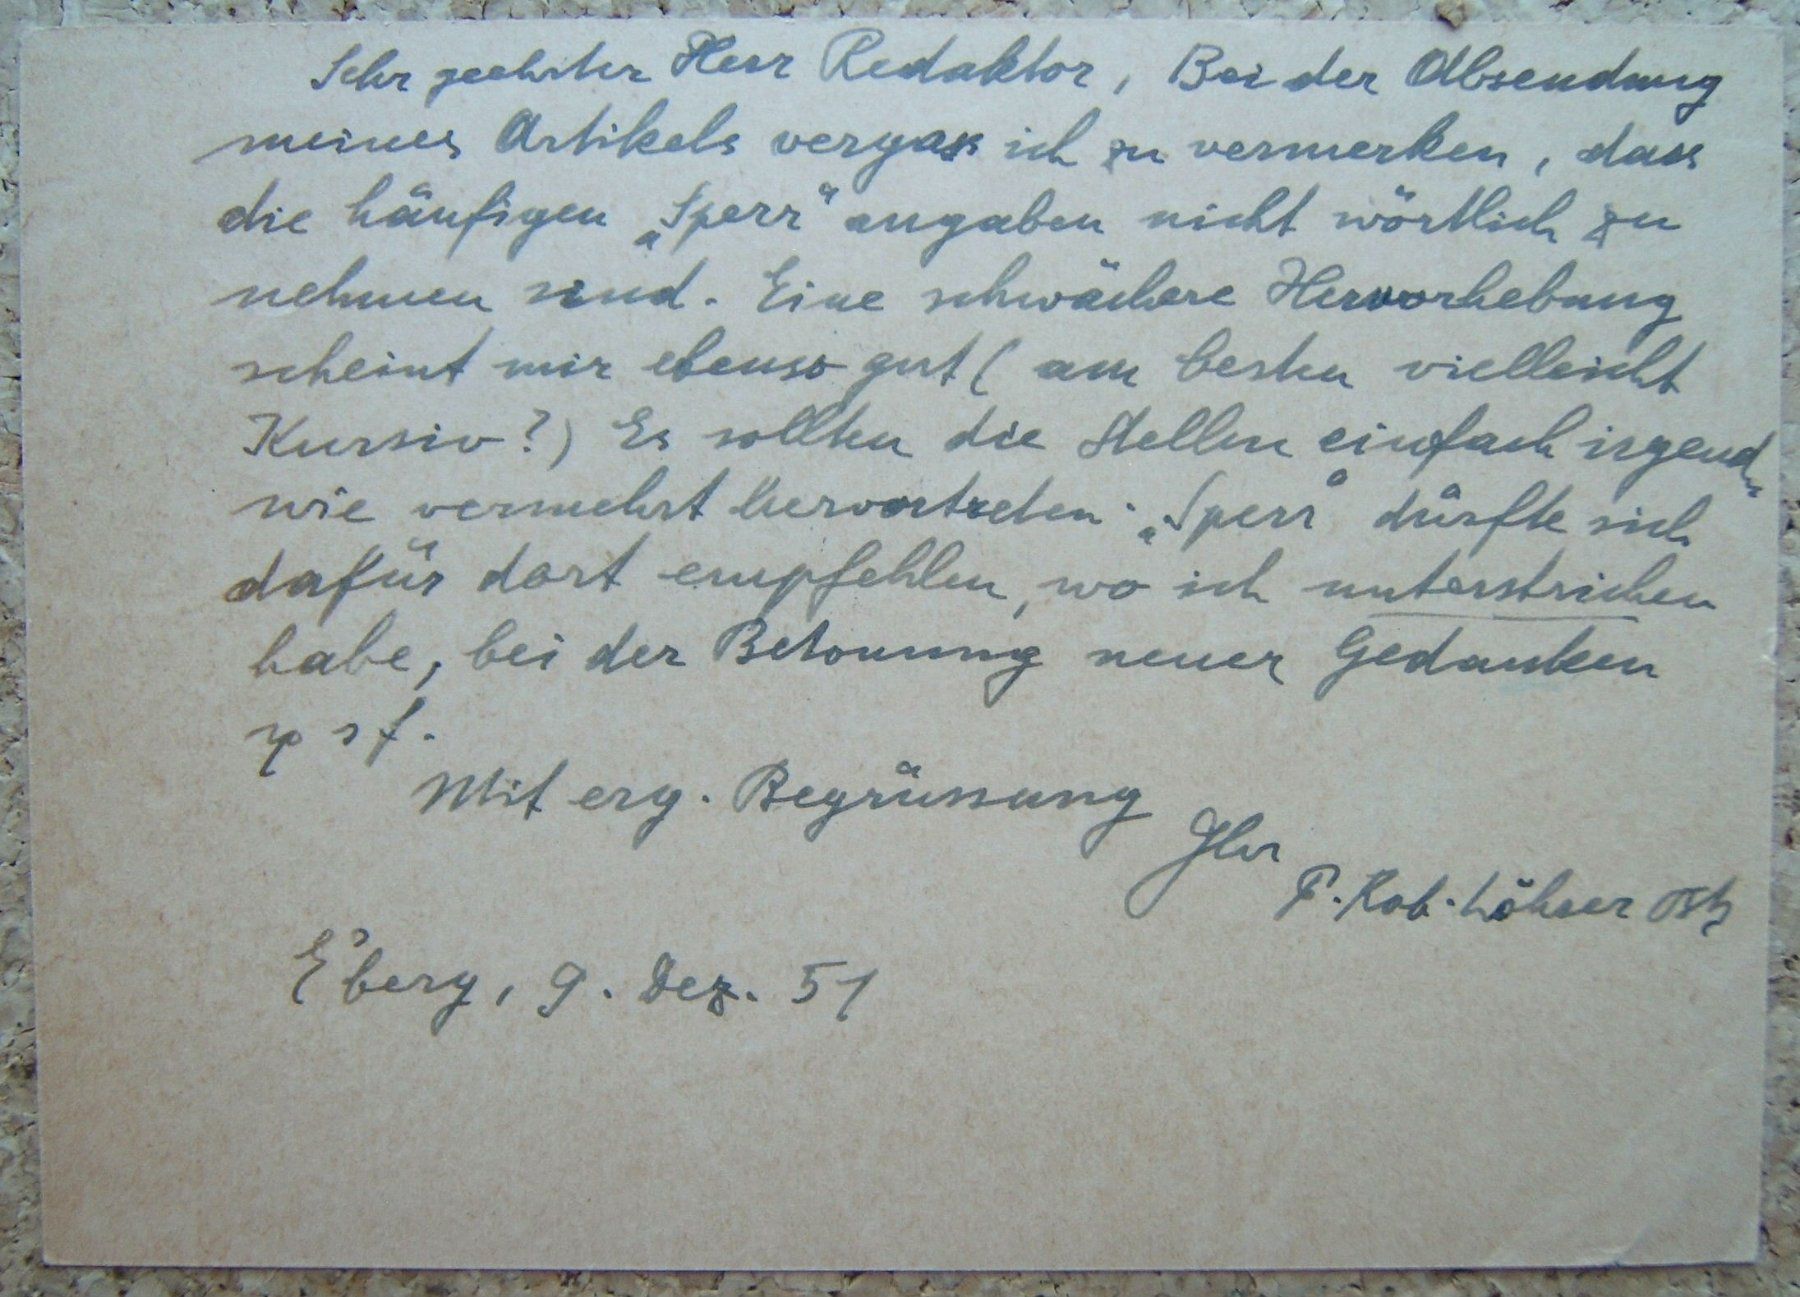 Sehr geehrter Herr Redaktor, Bei der Absendung
meines Artikels vergass ich zu vermerken, dass
die häufigen „Sperr“angaben nicht wörtlich zu
nehmen sind. Eine schwächere Hervorhebung
scheint mir ebenso gut (am besten vielleicht
Kursiv?) Es sollten die Stellen einfach irgend-
wie vermehrt hervortreten. „Sperr“ dürfte sich
dafür dort empfehlen, wo ich unterstrichen
habe, bei der Betonung neuer Gedanken
usf.
Mit erg. Begrüssung
Ihr
P. Rob. Löhrer
E'berg, 9. Dez. 51